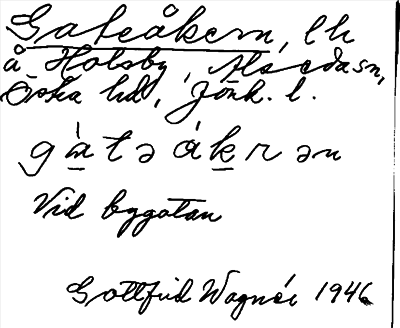 Gateåkern, lh
å Holsby, Alseda sn,
Östra hd, Jönk. l.
gàtə ákrən
Vid bygatan
Gottfrid Wagnér 1946